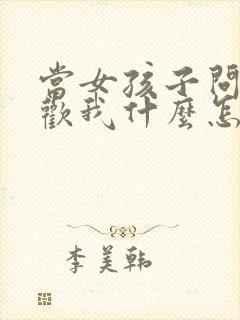 當女孩子問
歡我什麼怎
李美韩